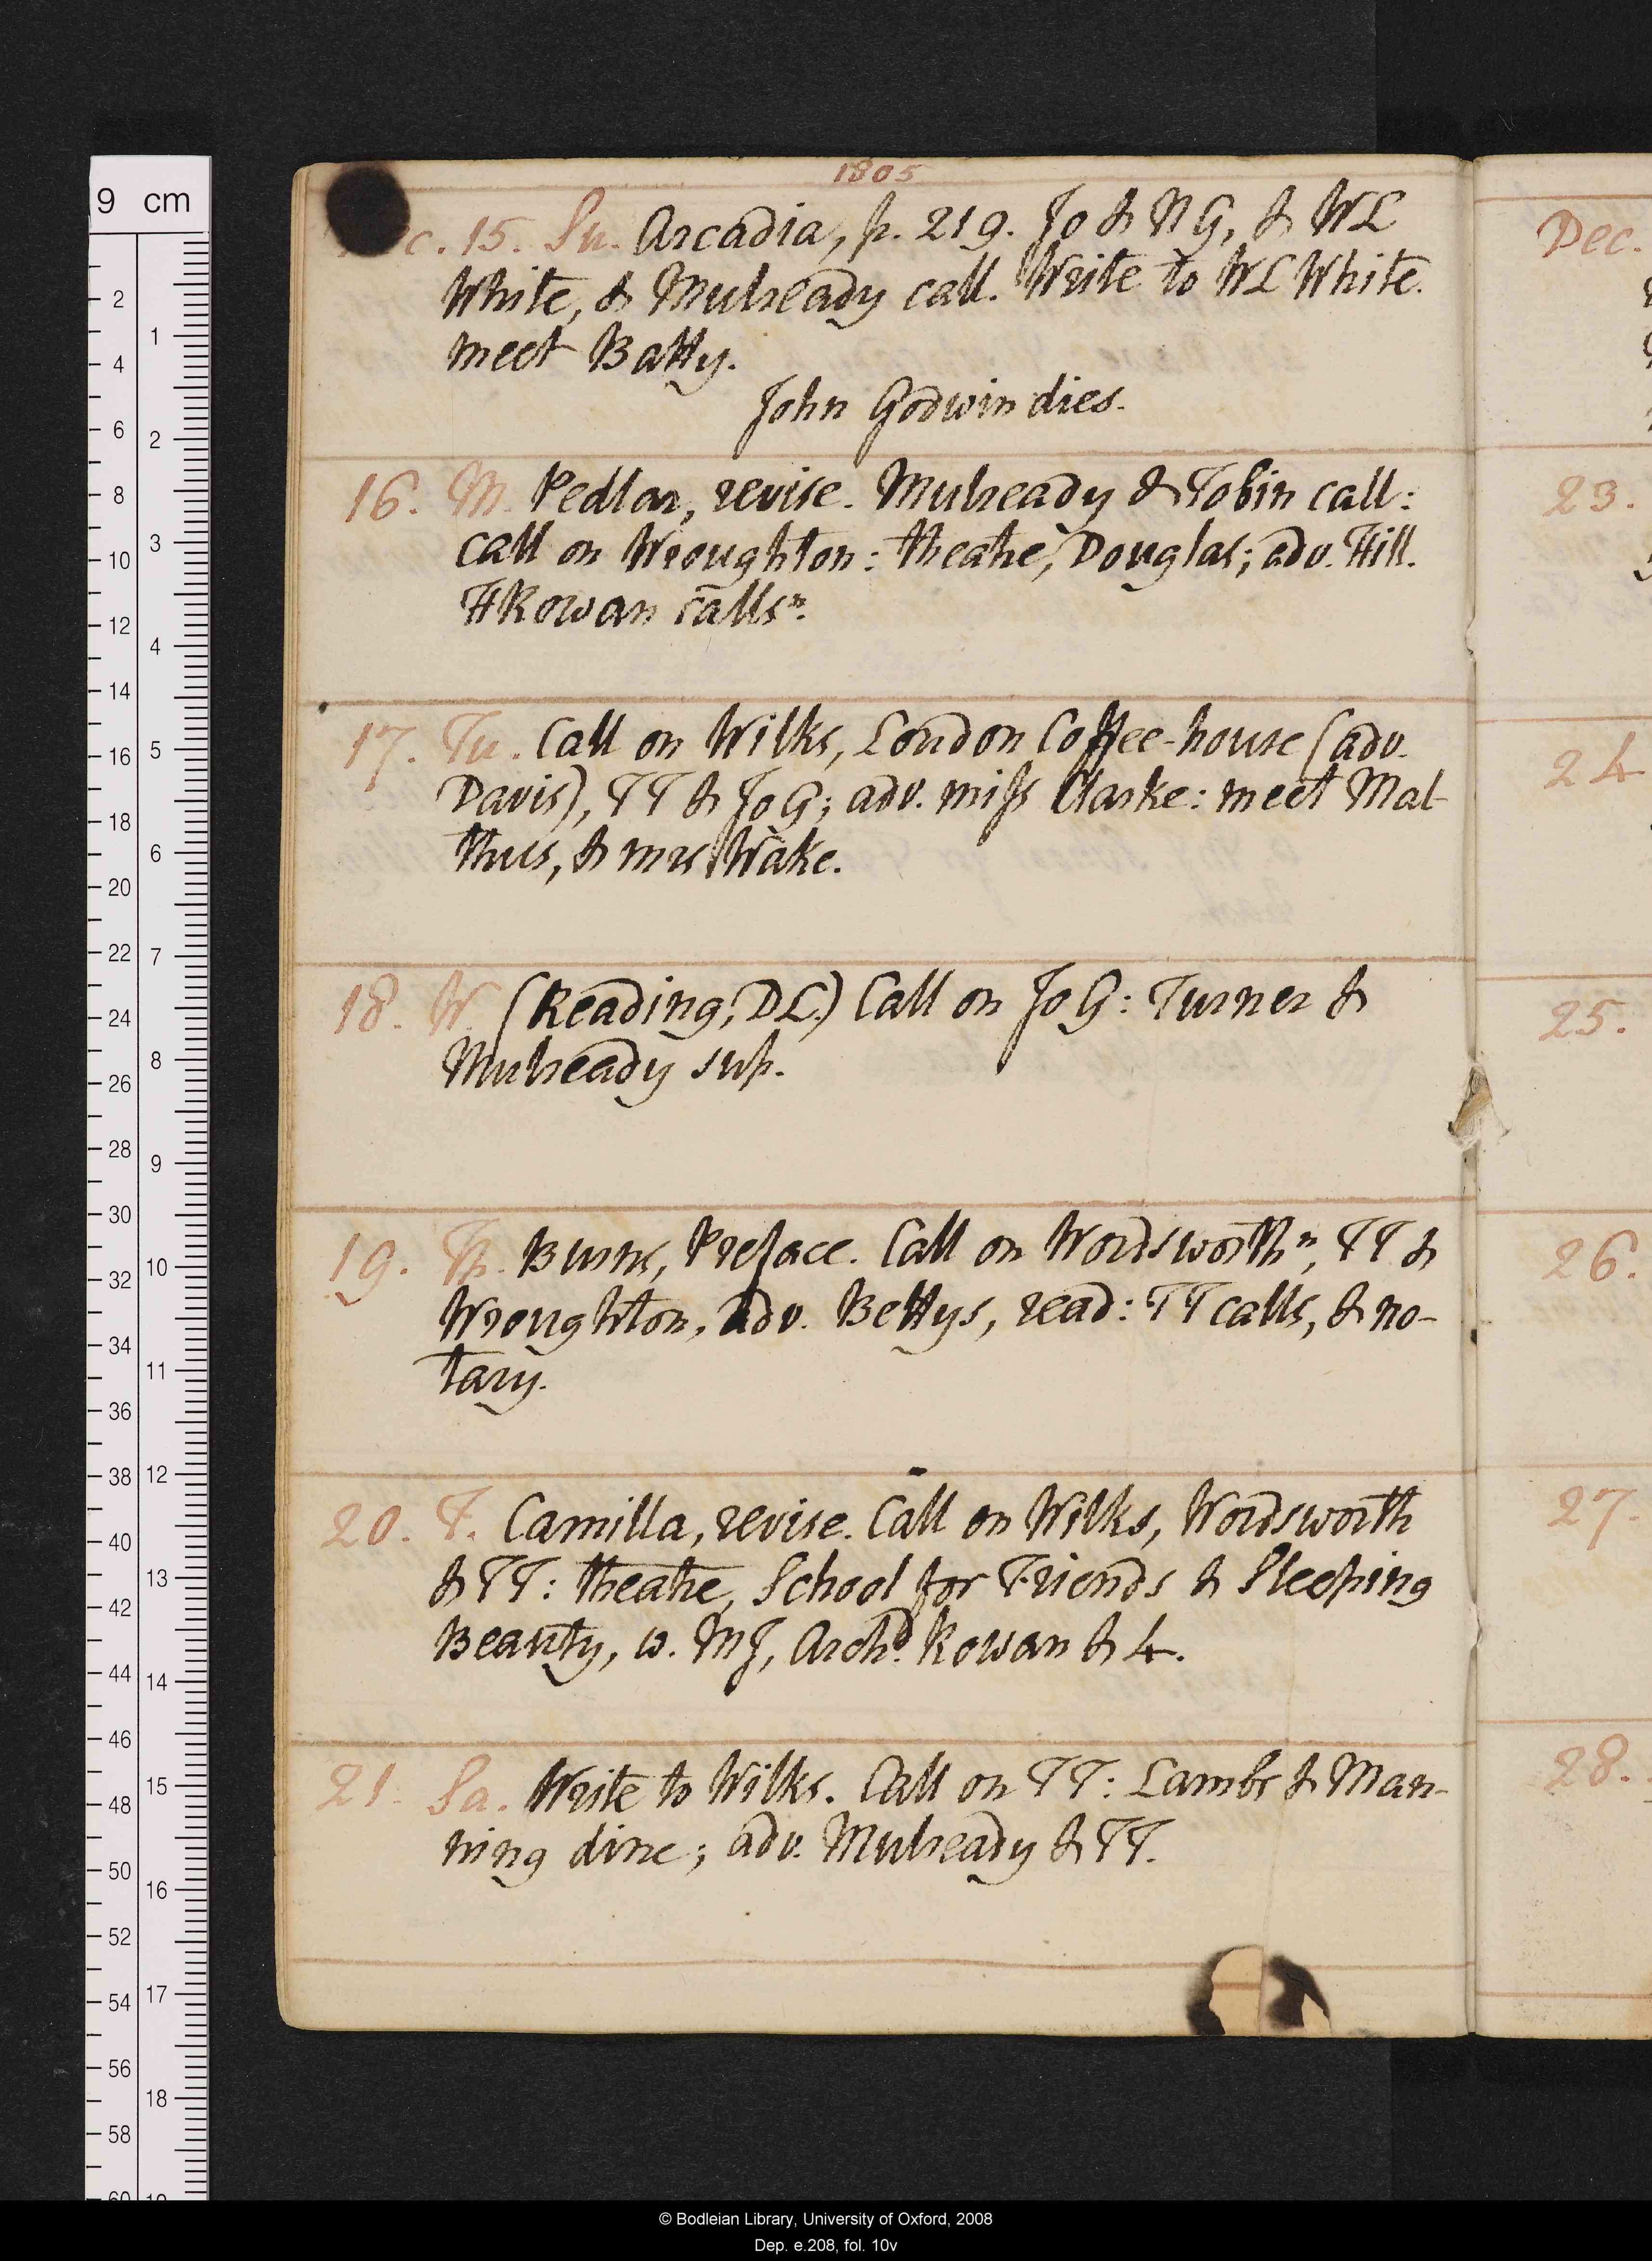 1805
c. 15. Su. Arcadia, p. 219. Jo & N G, & WL
White, & Mulready call. Write to WL White.
meet Batty.
John Godwin dies.
16. M. Pedlar, revise. Mulready & Tobin call:
call on Wroughton: theatre, Douglas; adv. Hill.
HRowan callsⁿ.
17. Tu. Call on Wilks, London Coffee-house (adv.
Davis), TT & Jo G; adv. miss Clarke: meet Mal-
thus, & mrs Wake.
18. W. (Reading, DL.) Call on Jo G: Turner &
Mulready sup.
19. Th. Burns, Preface. Call on Wordsworthⁿ, TT &
Wroughton, adv. Bettys, read: TT calls, & no-
tary.
20. F. Camilla, revise. Call on Wilks, Wordsworth
& TT: theatre, School for Friends & Sleeping
Beauty, w. MJ, Archd. Rowan & 4.
21. Sa. Write to Wilks. Call on TT: Lambs & Man-
ning dine; adv. Mulready & TT.
Dec.
23.
24
25.
26.
27.
28.
9 cm
2
4
6
8
10
12
14
16
18
20
22
24
26
28
30
32
34
36
38
40
42
44
46
48
50
52
54
56
58
60
1
2
3
4
5
6
7
8
9
10
11
12
13
14
15
16
17
18
© Bodleian Library, University of Oxford, 2008
Dep. e.208, fol. 10v